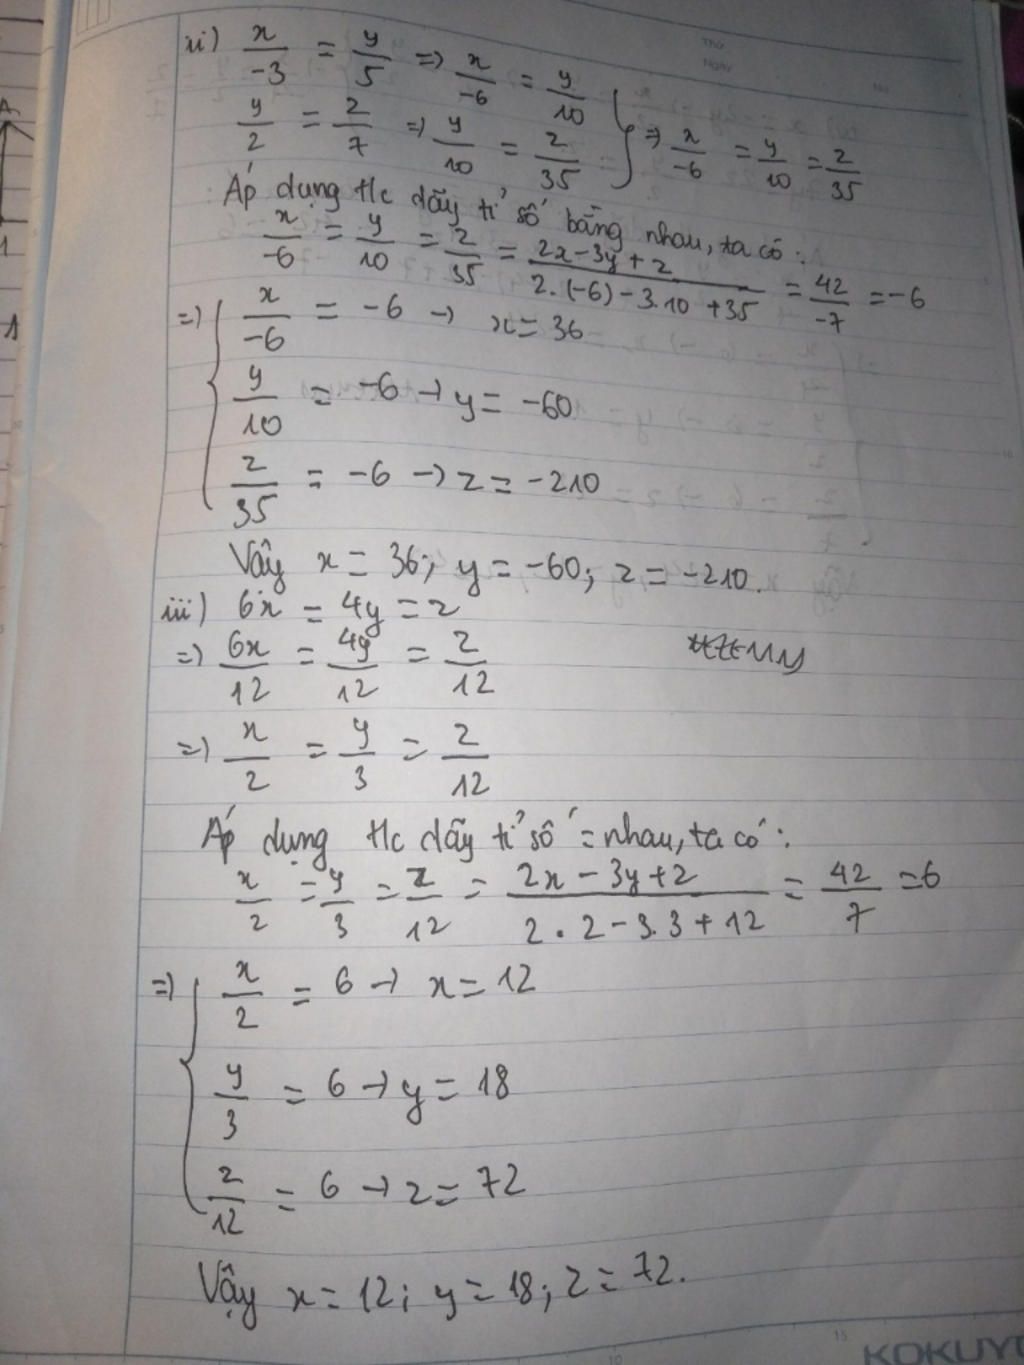 ii) x/-3 = y/5 => x/-6 = y/10
y/2 = z/7 => y/10 = z/35 } => x/-6 = y/10 = z/35
Áp dụng t/c dãy tỉ số bằng nhau, ta có:
x/-6 = y/10 = z/35 = 2x-3y+z / 2.(-6)-3.10+35 = 42/-7 = -6
=> { x/-6 = -6 → x = 36
y/10 = -6 → y = -60
z/35 = -6 → z = -210
Vậy x = 36; y = -60; z = -210.
iii) 6x = 4y = z
=> 6x/12 = 4y/12 = z/12
=> x/2 = y/3 = z/12
Áp dụng t/c dãy tỉ số = nhau, ta có:
x/2 = y/3 = z/12 = 2x-3y+z / 2.2-3.3+12 = 42/7 = 6
=> { x/2 = 6 → x = 12
y/3 = 6 → y = 18
z/12 = 6 → z = 72
Vậy x = 12; y = 18; z = 72.
KOKUYO